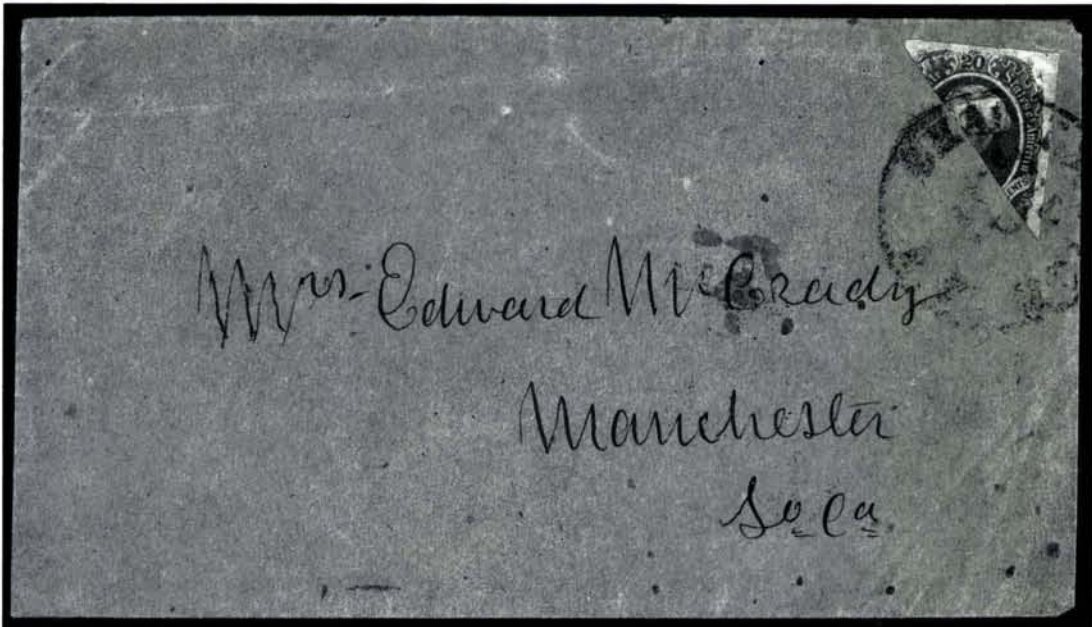 20 C
Mrs. Edward McCrady
Manchester
So Ca